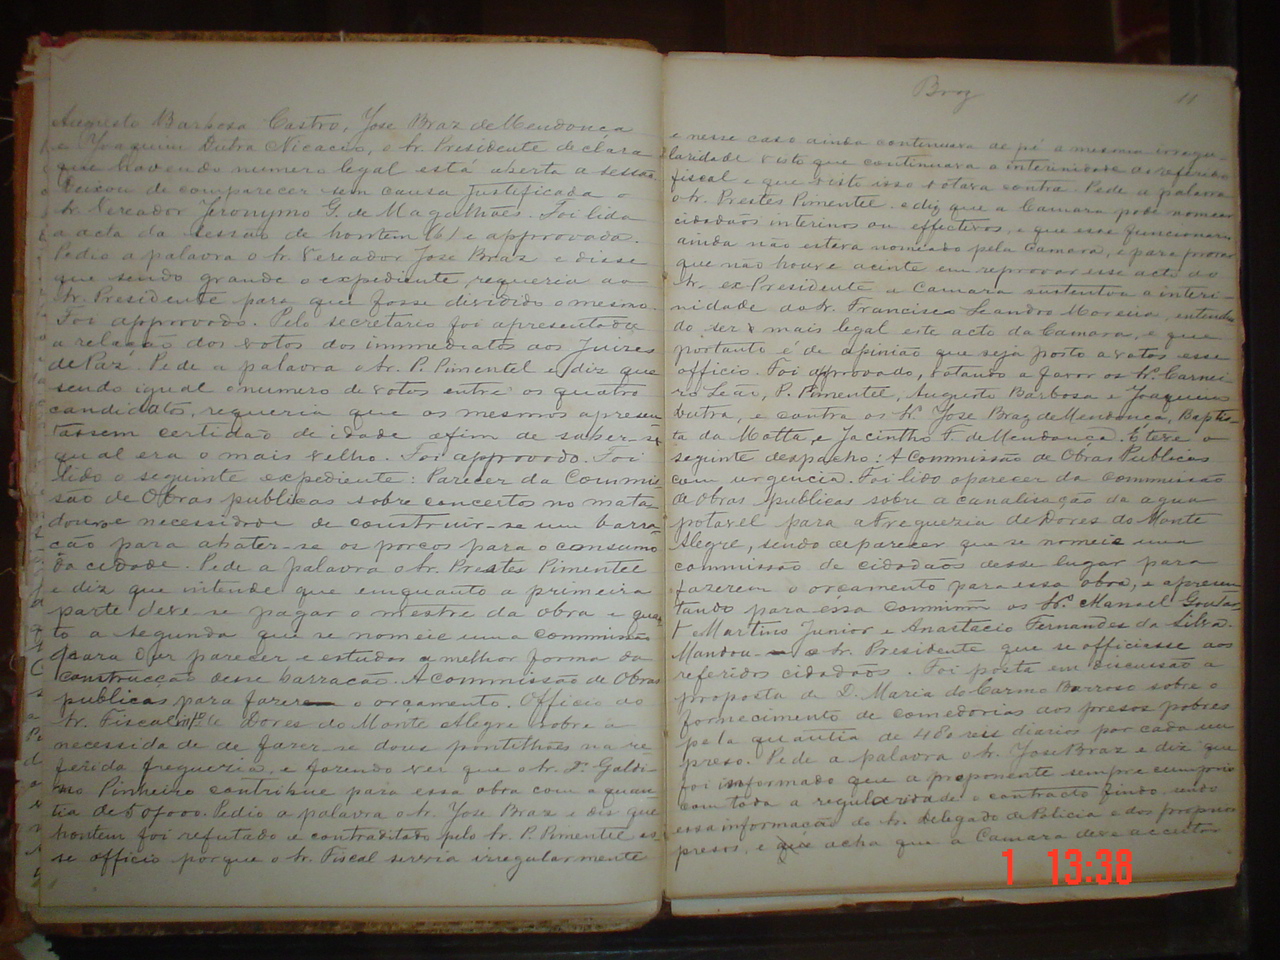 Augusto Barbosa Castro, Jose Braz de Mendonça
e Joaquim Dutra Nicacio, o Sr. Presidente declára
que havendo numero legal está aberta a sessão.
Deixou de comparecer sem causa justificada o
Sr. Vereador Jeronymo G. de Magalhães. Foi lida
a acta da sessão de hontem (6) e approvada.
Pedio a palavra o Sr. Vereador Jose Braz e disse
que sendo grande o expediente requeria ao
Sr. Presidente para que fosse dividido o mesmo.
Foi approvado. Pelo secretario foi apresentada
a relação dos votos dos immediatos aos Juizes
de Paz. Pede a palavra o Sr. P. Pimentel e diz que
sendo igual o numero de votos entre os quatro
candidatos, requeria que os mesmos apresen
tassem certidão de idade afim de saber-se
qual era o mais velho. Foi approvado. Foi
lido o seguinte expediente: Parecer da Commis
são de Obras publicas sobre concertos no mata
douro e necessidade de construir-se um barra
cão para abater-se os porcos para o consumo
da cidade. Pede a palavra o Sr. Prestes Pimentel
e diz que intende que emquanto a primeira
parte deve-se pagar o mestre da obra e quan
to a segunda que se nomeie uma commissão
para dar parecer e estudos a melhor forma da
construcção desse barracão. A Commissão de Obras
publicas para fazer o orçamento. Officio do
Sr. Fiscal de Dores do Monte Alegre sobre a
necessidade de fazer-se dous pontilhões na re
ferida freguezia, e fazendo ver que o Sr. Dr. Galdi-
no Pinheiro contribue para essa obra com a quan
tia de 50$000. Pedio a palavra o Sr. Jose Braz e diz que
hontem foi refutado e contraditado pelo Sr. P. Pimentel es
se officio porque o Sr. Fiscal servia irregularmente
Braz
11
e nesse caso ainda continuava de pé a mesma irregu-
laridade visto que continuava a interinidade do referido
fiscal e que visto isso votava contra. Pede a palavra
o Sr. Prestes Pimentel e diz que a Camara pode nomear
cidadãos interinos ou effectivos, e que esse funccionario
ainda não estava nomeado pela Camara, e para provar
que não houve acinte em reprovar esse acto do
Sr. ex-Presidente a Camara sustentou a interi-
nidade do Sr. Francisco Leandro Moreira, entenden
do ser mais legal este acto da Camara, e que
portanto é de opinião que seja posto a votos esse
officio. Foi approvado, votando a favor os Srs. Carnei-
ro Leão, P. Pimentel, Augusto Barbosa e Joaquim
Dutra, e contra os Srs. Jose Braz de Mendonça, Baptis-
ta da Motta, e Jacintho F. de Mendonça. E teve o
seguinte despacho: A Commissão de Obras Publicas
com urgencia. Foi lido o parecer da commissão
de Obras publicas sobre a canalisação da agua
potavel para a Freguezia de Dores do Monte
Alegre, sendo de parecer que se nomeie uma
commissão de cidadãos desse lugar para
fazerem o orçamento para essa obra, e apresen
tando para essa commissão os Srs. Manoel
Martins Junior e Anastacio Fernandes da Silva.
Mandou o Sr. Presidente que se officiasse aos
referidos cidadãos. Foi posta em discussão a
proposta de D. Maria do Carmo Barroso sobre o
fornecimento de comedorias aos presos pobres
pela quantia de 480 reis diarios por cada um
preso. Pede a palavra o Sr. Jose Braz e diz que
foi informado que a proponente sempre cumprio
com toda a regularidade o contracto findo, sendo
essa informação do Sr. Delegado de Policia e dos proprios
presos, e que acha que a Camara deve acceitar
1 13:38